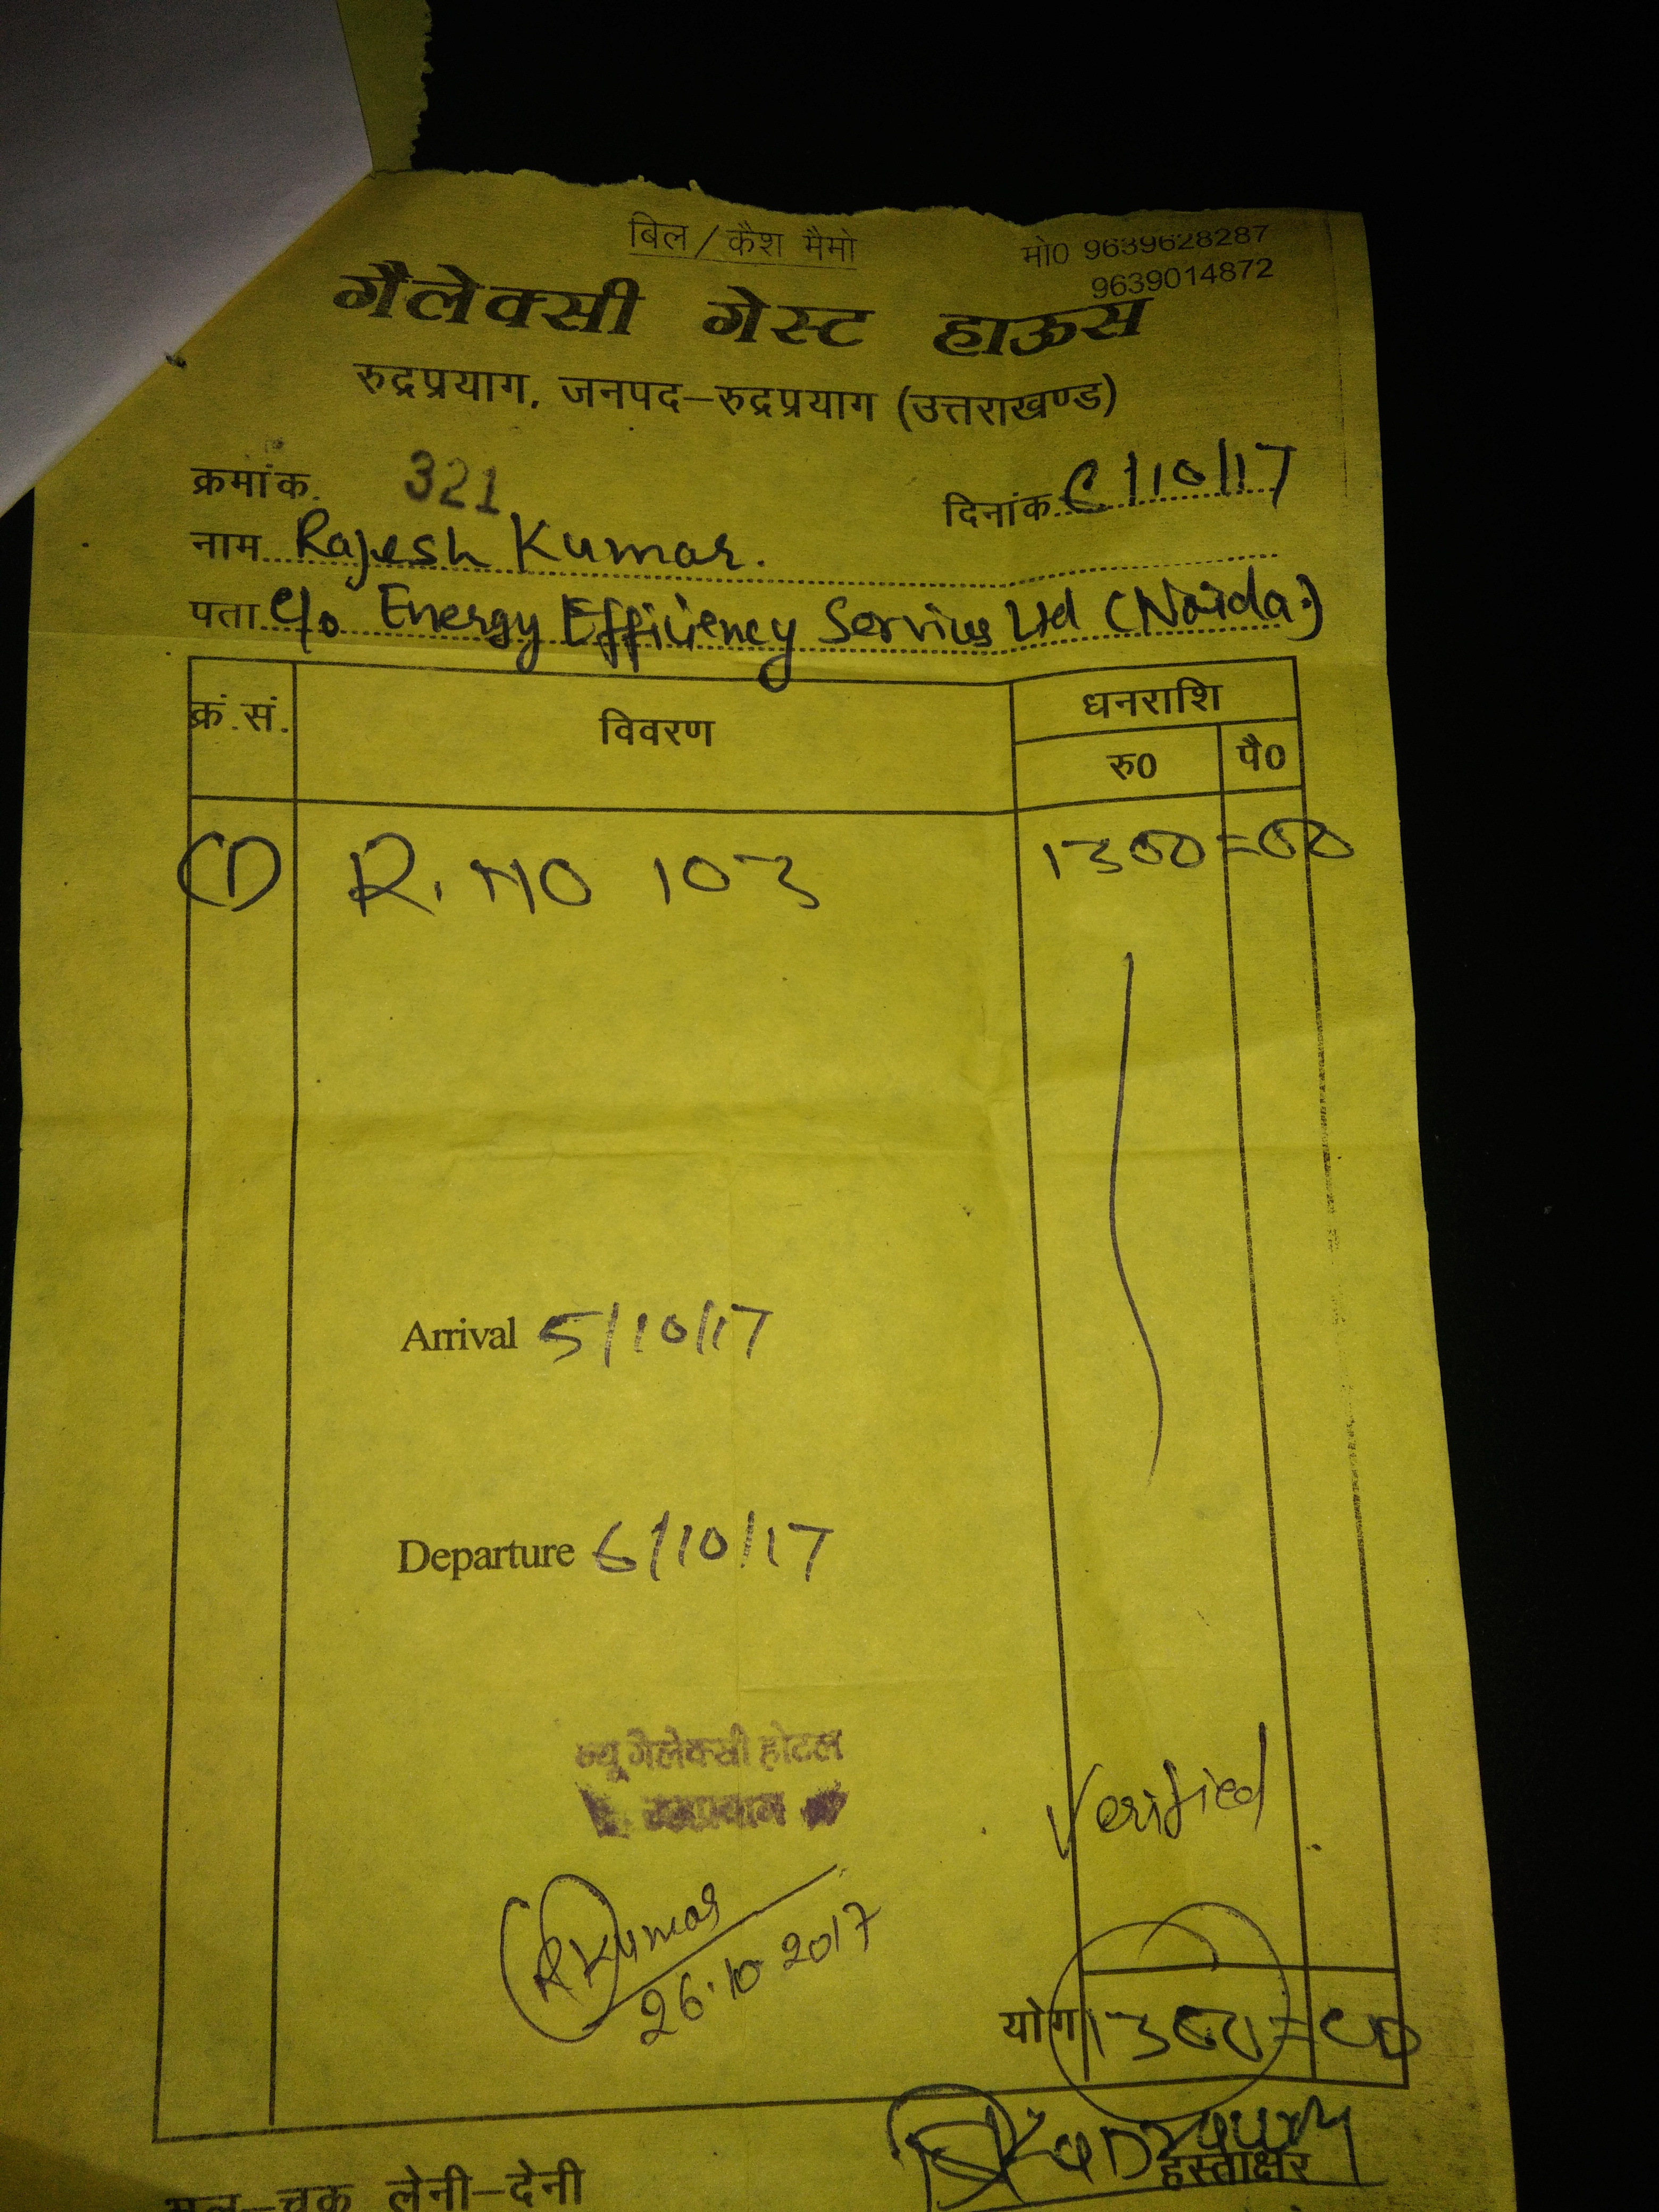 बिल / कैश मैमो
मो0 9639628287
9639014872
गैलेक्सी गेस्ट हाऊस
रुद्रप्रयाग, जनपद–रुद्रप्रयाग (उत्तराखण्ड)
क्रमांक. 321
दिनांक 6/10/17
नाम Rajesh Kumar.
पता c/o Energy Efficiency Services Ltd (Noida)
क्रं.सं. विवरण धनराशि
रु0 पै0
(1) R. NO 103 1300=00
Arrival 5/10/17
Departure 6/10/17
न्यू गैलेक्सी होटल
रुद्रप्रयाग
Verified
RKumar
26.10.2017
योग 1300=00
हस्ताक्षर
भूल–चूक लेनी–देनी